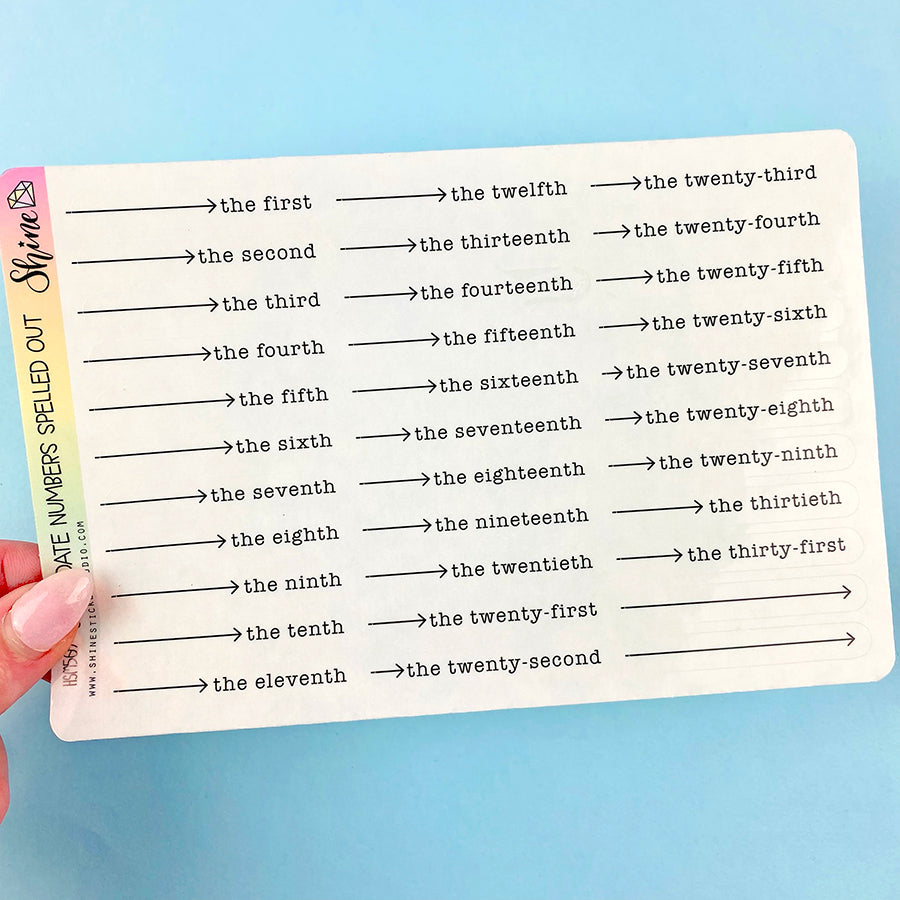 Shine
DATE NUMBERS SPELLED OUT
the first
the second
the third
the fourth
the fifth
the sixth
the seventh
the eighth
the ninth
the tenth
the eleventh
the twelfth
the thirteenth
the fourteenth
the fifteenth
the sixteenth
the seventeenth
the eighteenth
the nineteenth
the twentieth
the twenty-first
the twenty-second
the twenty-third
the twenty-fourth
the twenty-fifth
the twenty-sixth
the twenty-seventh
the twenty-eighth
the twenty-ninth
the thirtieth
the thirty-first